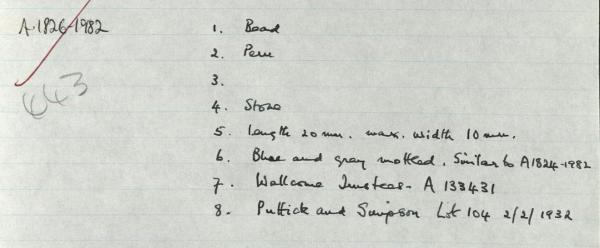 A.1826-1982
1. Bead
2. Peru
3.
643
4. Stone
5. Length 20 mm. max. width 10 mm.
6. Blue and gray mottled. Similar to A1824-1982
7. Wellcome Trustees - A 133431
8. Puttick and Simpson Lot 104 2/2/1932